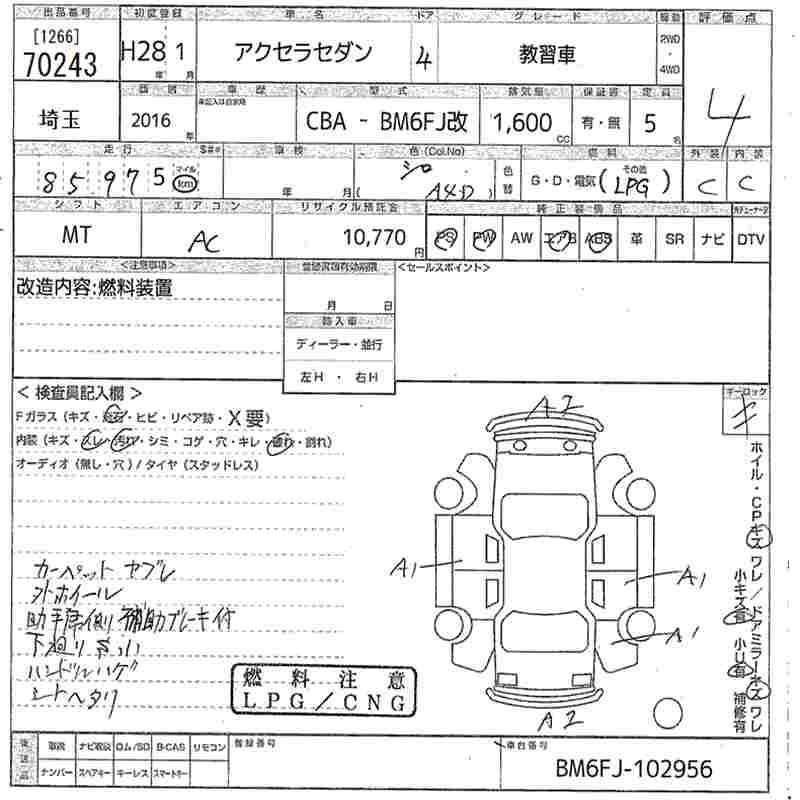 出品番号 初度登録 車名 ドア グレード 駆動 評価点
[1266]
70243 H28 1 アクセラセダン 4 教習車 2WD・4WD 4
年 月
年式 車歴 型式 排気量 保証書 定員
埼玉 2016 年 CBA - BM6FJ改 1,600 CC 有・無 5 名
走行 車検 色(Col.No) 燃料 外装 内装
85975 マイル km 年 月 シロ ( A4D ) 色替 G・D・電気 その他 (LPG) C C
シフト エアコン リサイクル預託金 純正装備品
MT AC 10,770 円 PS PW AW エアB ABS 革 SR ナビ DTV
<注意事項> <セールスポイント>
改造内容:燃料装置 月 日
輸入車
ディーラー・並行
左H ・ 右H
<検査員記入欄>
Fガラス(キズ・飛石・ヒビ・リペア跡・X要)
内装(キズ・スレ・汚れ・シミ・コゲ・穴・キレ・破れ・割れ)
オーディオ(無し・穴)/タイヤ(スタッドレス)
カーペット ヤブレ
外ホイール
助手席側 補助ブレーキ付
下廻りサビ小
ハンドルハゲ
シートヘタリ
燃料注意
LPG/CNG
A2
A1
A1
A1
A2
キ
ホイル・CPキズ ワレ/ドアミラーキズ ワレ
小キズ有 小U有 補修有
後送品 取説 ナビ取説 ロム/SD B-CAS リモコン 登録番号 車台番号
ナンバー スペアキー キーレス スマートキー BM6FJ-102956